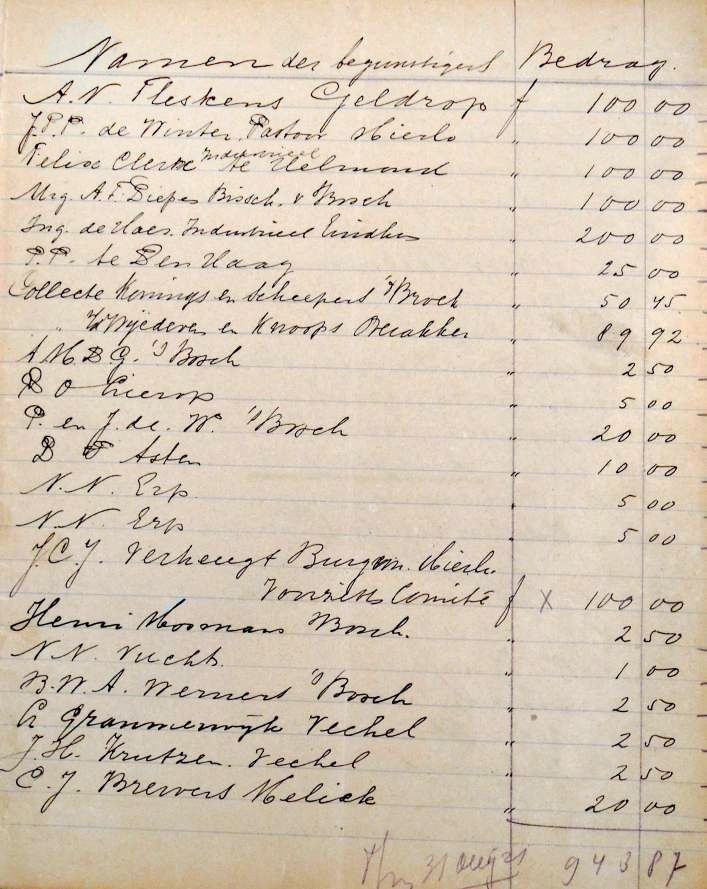 Namen der begunstigers Bedrag.
A.N. Fleskens Geldrop f 100 00
J.P.P. de Winter Pastoor Mierlo " 100 00
Industrieel
Felix Clerx te Helmond " 100 00
Mrg. A.F. Diepen Bissch. v 's Bosch " 100 00
Ing. de Haes. Industrieel Eindhov " 200 00
P.P. te Den Haag " 25 00
Collecte Konings en Scheepers 't Broek " 50 45
" en Knoops " 89 92
A.M.D.G. 's Bosch " 2 50
D O Lierop " 5 00
P. en J. de. W. 's Bosch " 20 00
D Asten " 10 00
N.N. Erp. " 5 00
N.N. Erp " 5 00
J.C.J. Verheugt Burgm. Mierlo
Voorzitter Comité f X 100 00
Henri Mosmans 's Bosch. " 2 50
N.N. Vucht. " 1 00
B.W.A. Werners 's Bosch " 2 50
Veghel " 2 50
J.H. Krutzen. Veghel " 2 50
C.J. Brewers Melick " 20 00
31 943 87